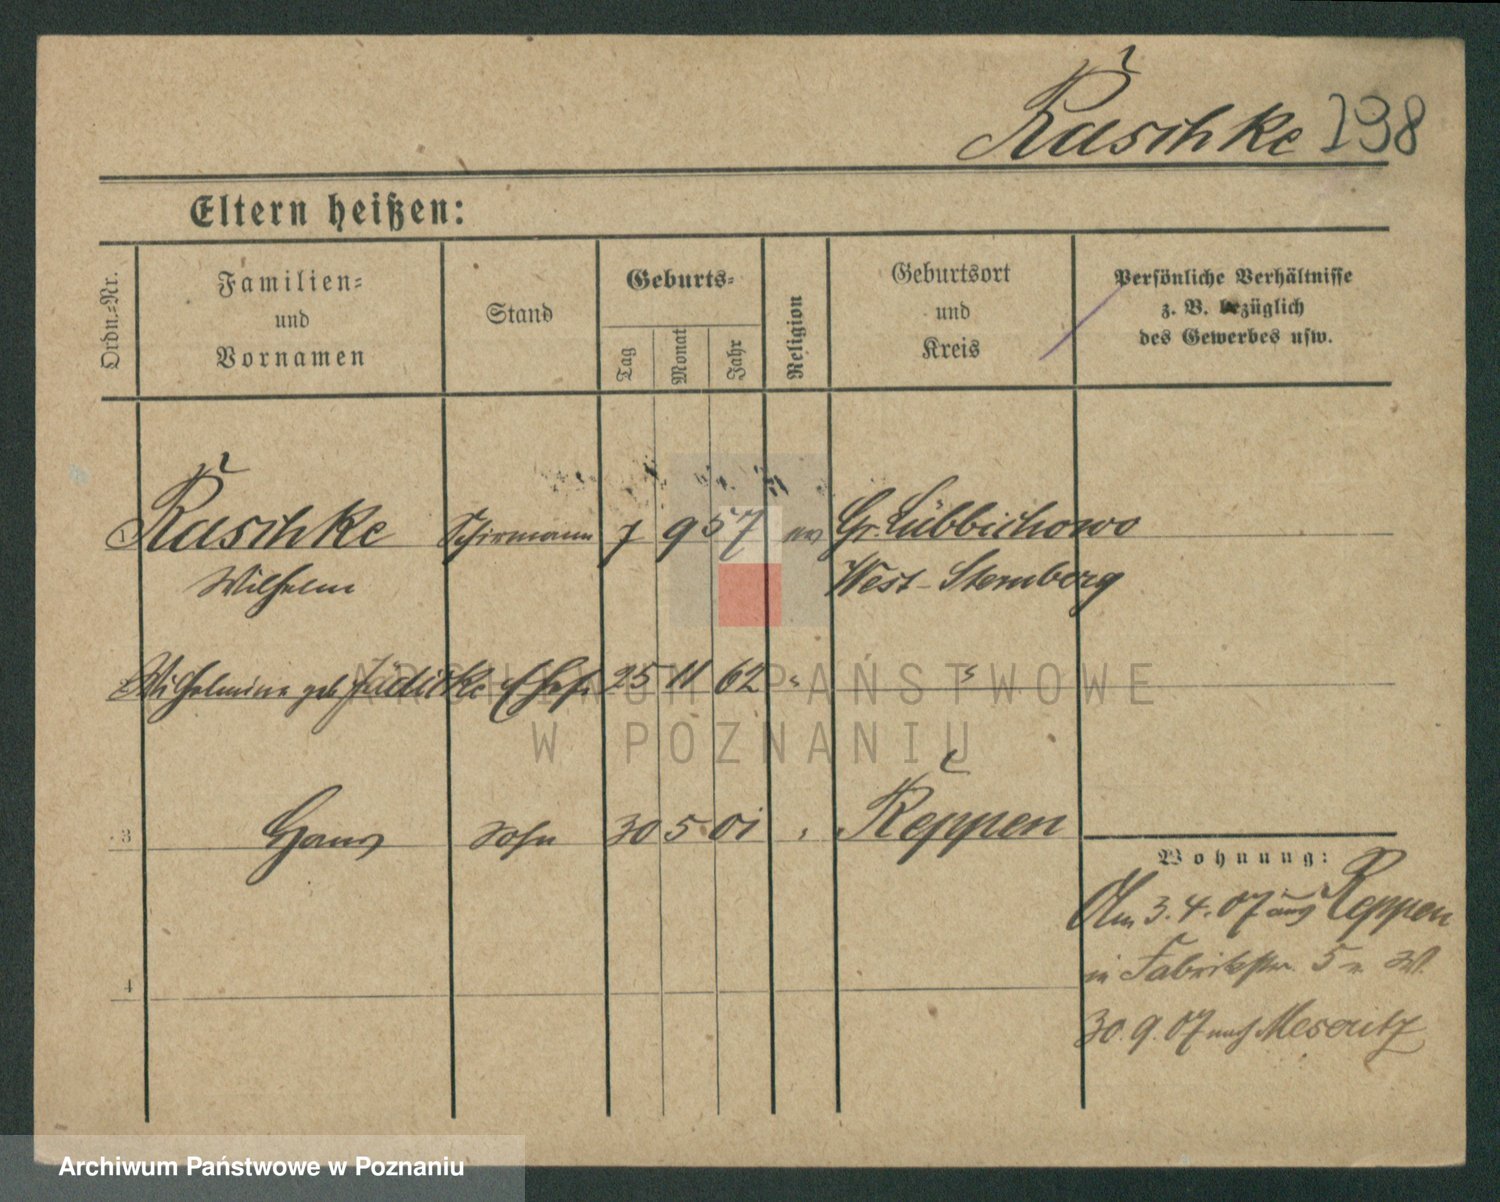 Raschke 198
Eltern heißen:
Ordn.-Nr.
Familien-
und
Vornamen
Stand
Geburts-
Tag
Monat
Jahr
Religion
Geburtsort
und
Kreis
Persönliche Verhältnisse
z. B. bezüglich
des Gewerbes usw.
1 Raschke Schirmann 7 9 57 ev Gr. Lübbichowo
Wilhelm West-Sternberg
Wilhelmine geb Jädicke Ehefr 25 11 62 " "
3 Hans Sohn 30 5 01 " Reppen
4
Wohnung:
Am 3.4.07 aus Reppen
in Fabrikstr. 5
30.9.07 nach Meseritz
ARCHIWUM PAŃSTWOWE
W POZNANIU
Archiwum Państwowe w Poznaniu